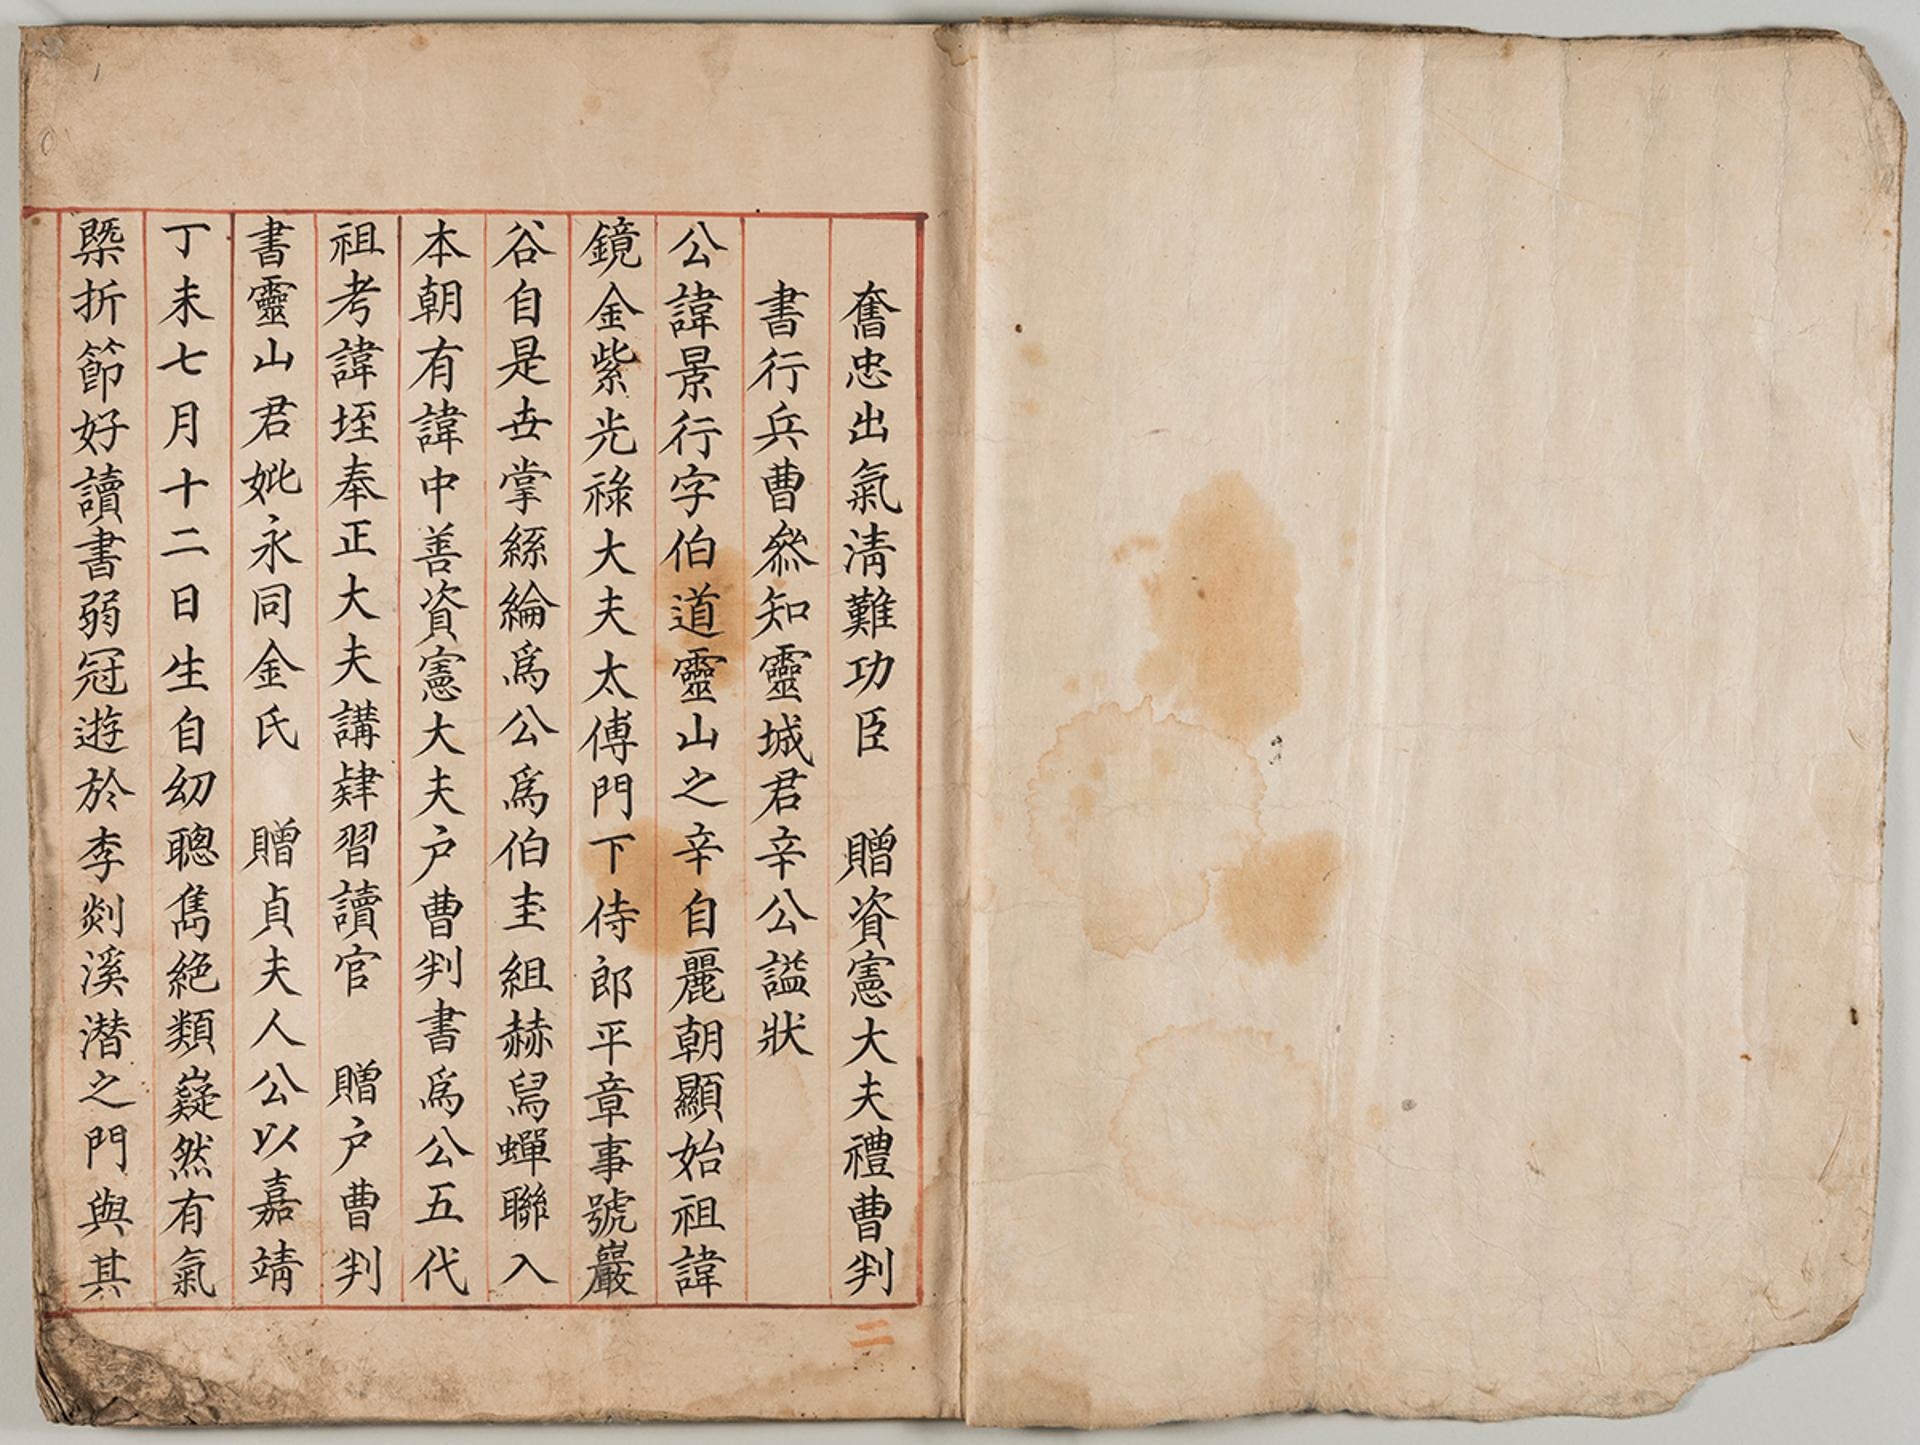 奮忠出氣淸難功臣　贈資憲大夫禮曹判
書行兵曹叅知靈城君辛公諡狀
公諱景行字伯道靈山之辛自麗朝顯始祖諱
鏡金紫光祿大夫太傅門下侍郎平章事號巖
谷自是世掌絲綸爲公爲伯圭組赫舃蟬聯入
本朝有諱中善資憲大夫戶曹判書爲公五代
祖考諱垤奉正大夫講肄習讀官　贈戶曹判
書靈山君妣永同金氏　贈貞夫人公以嘉靖
丁未七月十二日生自幼聰雋絶類嶷然有氣
槩折節好讀書弱冠遊於李剡溪潜之門與其
二